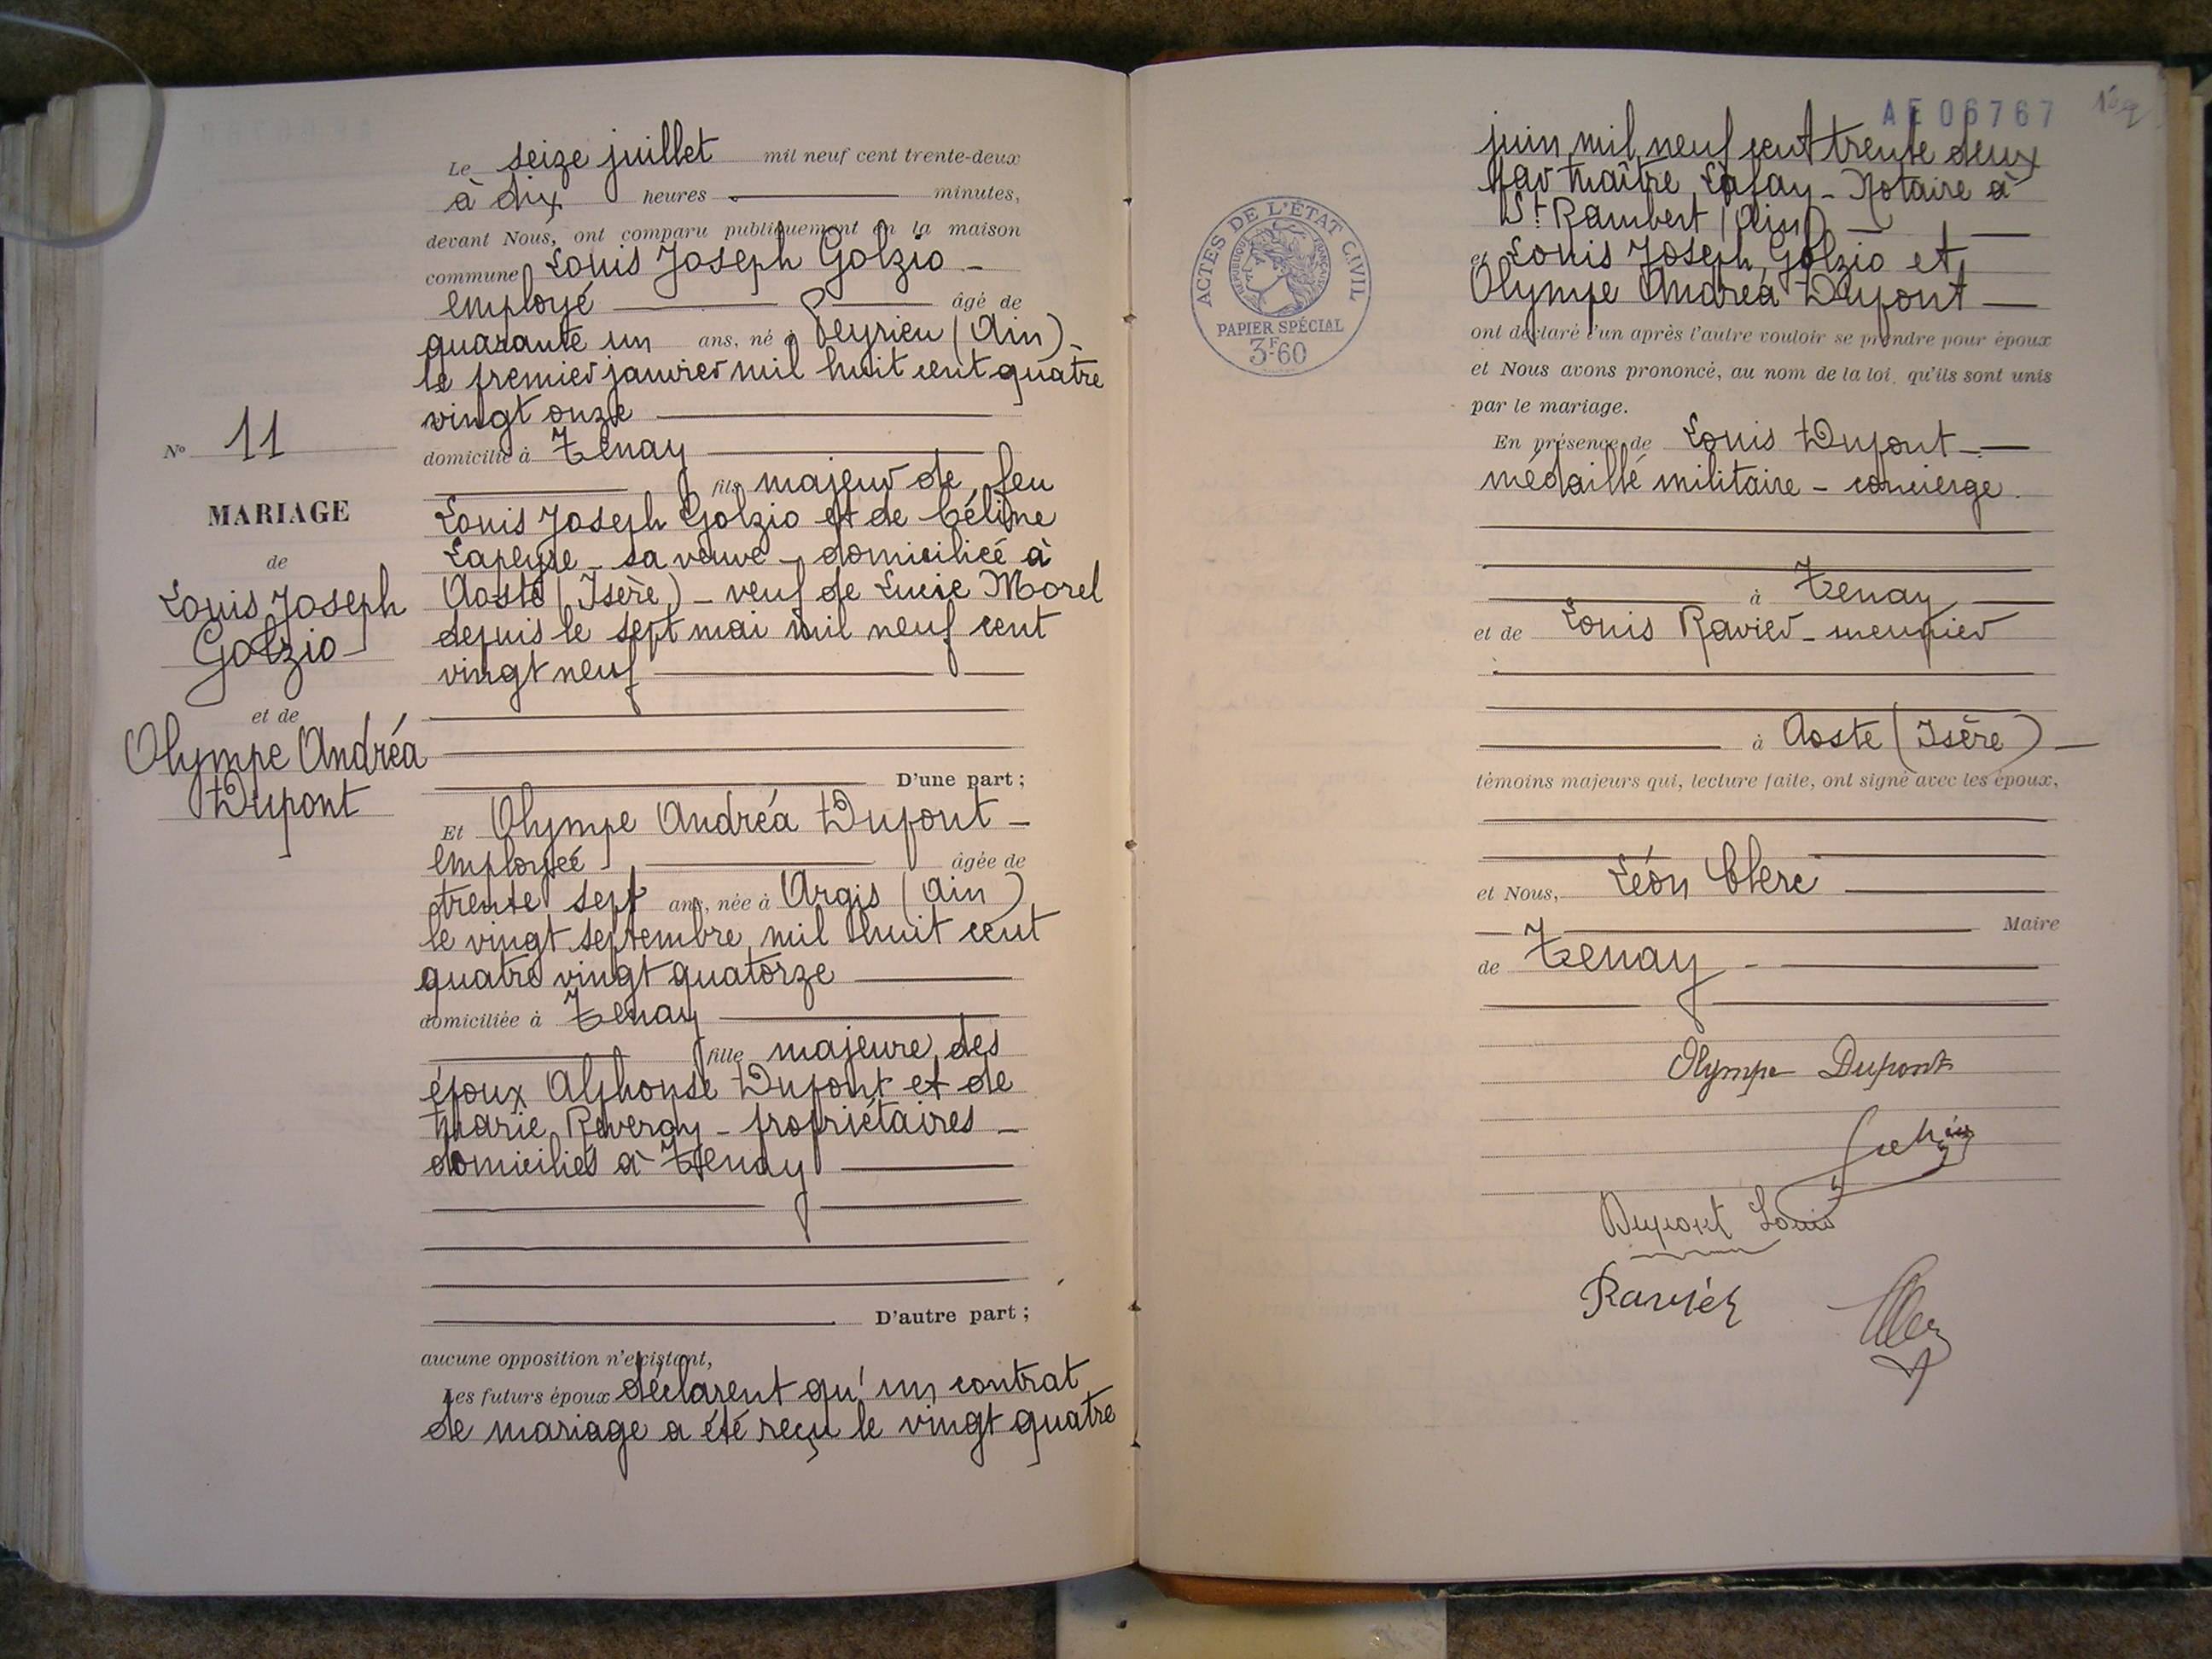 Le seize juillet mil neuf cent trente-deux
à dix heures minutes,
devant Nous, ont comparu publiquement en la maison
commune Louis Joseph Golzio
employé âgé de
quarante un ans, né à Peyrieu (Ain)
le premier janvier mil huit cent quatre
vingt onze
domicilié à Tenay
fils majeur de feu
Louis Joseph Golzio et de Céline
Lapeyre - sa veuve - domiciliée à
Aoste (Isère) - veuf de Lucie Morel
depuis le sept mai mil neuf cent
vingt neuf
D'une part ;
Et Olympe Andréa Dupont -
employée âgée de
trente sept ans, née à Argis (Ain)
le vingt septembre mil huit cent
quatre vingt quatorze
domiciliée à Tenay
fille majeure des
époux Alphonse Dupont et de
MarieRavery - propriétaires -
domiciliés à Tenay
D'autre part ;
aucune opposition n'existant,
Les futurs époux déclarent qu'un contrat
de mariage a été reçu le vingt quatre
N° 11
MARIAGE
de
Louis Joseph
Golzio
et de
Olympe Andréa
Dupont
AE06767
juin mil neuf cent trente deux
par Maître Lafay - Notaire à
St Rambert (Ain)
et Louis Joseph Golzio et
Olympe Andréa Dupont
ont déclaré l'un après l'autre vouloir se prendre pour époux
et Nous avons prononcé, au nom de la loi, qu'ils sont unis
par le mariage.
En présence de Louis Dupont -
médaillé militaire - concierge.
à Tenay
et de Louis Ravier - meunier
à Aoste (Isère)
témoins majeurs qui, lecture faite, ont signé avec les époux,
et Nous, Léon Clerc
Maire
de Tenay
Olympe Dupont
Dupont Louis
Ravier
ACTES DE L'ÉTAT CIVIL
RÉPUBLIQUE FRANÇAISE
PAPIER SPÉCIAL
3F.60